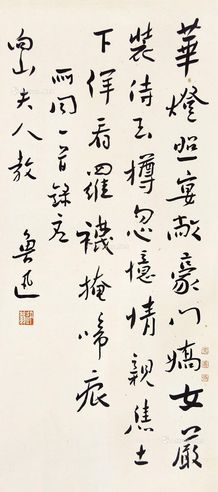 華燈照宴敞豪門嬌女嚴
裝侍玉樽忽憶情親焦土
下佯看羅襪掩啼痕
所聞一首錄应
向山夫人教
魯迅